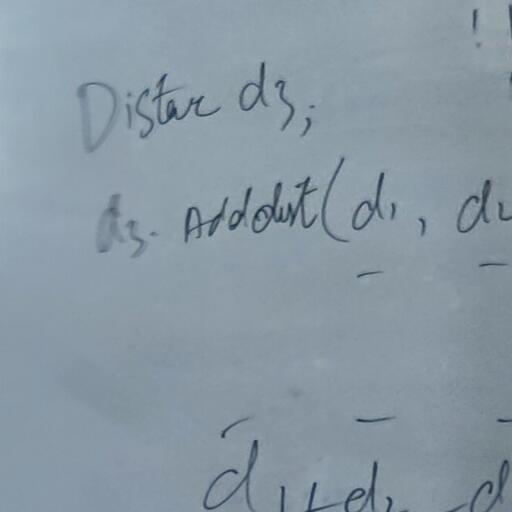 Distar d3;
d3. AddDist(d1, d2
d1+d2 d